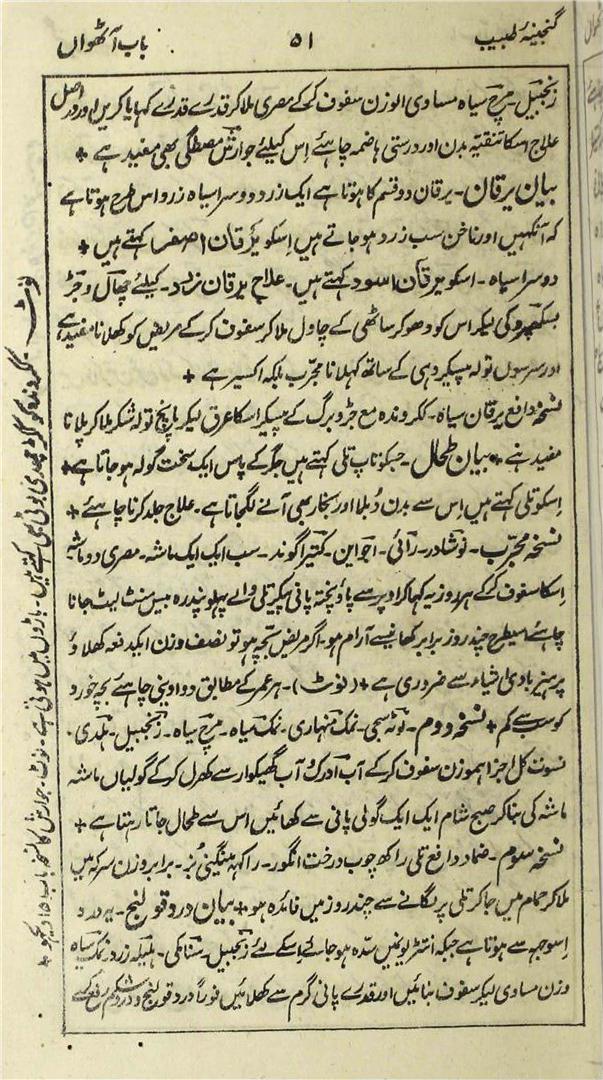 گنجینۂ طبیب ۵۱ باب آٹھواں
زنجبیل۔ مرچ سیاہ مساوی الوزن سفوف کرکے مصری ملا کر قدرے قدرے کہا یا کریں اور دراصل
علاج اسکا تنقیہ بدن اور درستی ہاضمہ چاہئے اِس کیلئے جوارش مصطگی بھی مفید ہے +
بیان یرقان۔ یرقان دو قسم کا ہوتا ہے ایک زرد دوسرا سیاہ زرد اس طرح ہوتا ہے
کہ آنکہیں اور ناخن سب زرد ہو جاتے ہیں اِسکو یرقان اصفر کہتے ہیں +
دوسرا سیاہ۔ اسکو یرقان اسود کہتے ہیں۔ علاج یرقان زرد۔ کیلئے چھال و جڑ
کی لیکر اس کو دھو کر ساٹھی کے چاول ملا کر سفوف کرکے مریض کو کھلانا مفید ہے
اور سرسوں تولہ پیسکر دہی کے ساتھ کہلانا مجرّب بلکہ اکسیر ہے +
نسخہ دافع یرقان سیاہ۔ ککروندہ مع جڑ و برگ کے پیسکر اسکا عرق لیکر پانچ تولہ شکر ملا کر پلانا
مفید ہے + بیان طحال۔ جسکو تاپ تلی کہتے ہیں جگر کے پاس ایک سخت گولہ ہو جاتا ہے +
اِسکو تلی کہتے ہیں اِس سے بدن دُبلا اور بخار بھی آنے لگجاتا ہے۔ علاج جلد کرنا چاہئے +
نسخہ مجرّب۔ نوشادر۔ رائی۔ اجواین۔ کتیرا گوند۔ سب ایک ایک ماشہ۔ مصری دو ماشہ
اِسکا سفوف کرکے ہر روز یہ کہا کر اوپر سے پاؤ پختہ پانی پیکر تلی والے پہلو پندرہ بیس منٹ لیٹ جانا
چاہئے اسیطرح چند روز برابر کھانیسے آرام ہو۔ اگر مریض بچہ ہو تو نصف وزن ایکدفعہ کھلاؤ
پرہیز بادی اشیاء سے ضروری ہے + (نوٹ)۔ ہر عمر کے مطابق دوا دینی چاہئے بچہ خورد
کو سب سے کم + نسخہ دوم۔ لوٹہ سجی۔ نمک سیاہ۔ مرچ سیاہ۔ زنجبیل۔ ہلدی۔
نسوت کل اجزا ہموزن سفوف کرکے آب ادرک و آب گھیکوار سے کھرل کرکے گولیاں ماشہ
ماشہ کی بنا کر صبح شام ایک ایک گولی پانی سے کھائیں اس سے طحال جاتا رہتا ہے +
نسخہ سوم۔ ضماد دافع تلی راکھ چوب درخت انگور۔ راکہہ مینگنی بُز۔ برابر وزن سرکہ میں
ملا کر حمام میں جا کر تلی پر لگانے سے چند روز میں فائدہ ہو + بیان درد قولنج۔ یہ درد
اِسوجہ سے ہوتا ہے جبکہ انتڑیونمیں سدّہ ہو جائے اِسکے لئے زنجبیل۔ سنامکی۔ ہلیلہ زرد۔ نمک سیاہ
وزن مساوی لیکر سفوف بنائیں اور قدرے پانی گرم سے کھلائیں فوراً درد قولنج و درد شکم رفع کرے
نوٹ۔ ککروندہ کو ککڑ چھدی بوٹی بھی کہتے ہیں۔ باڑوں میں ہوتی ہے۔ نوٹ۔ جوارش کا نسخہ باب ۱۵ دیکھو +